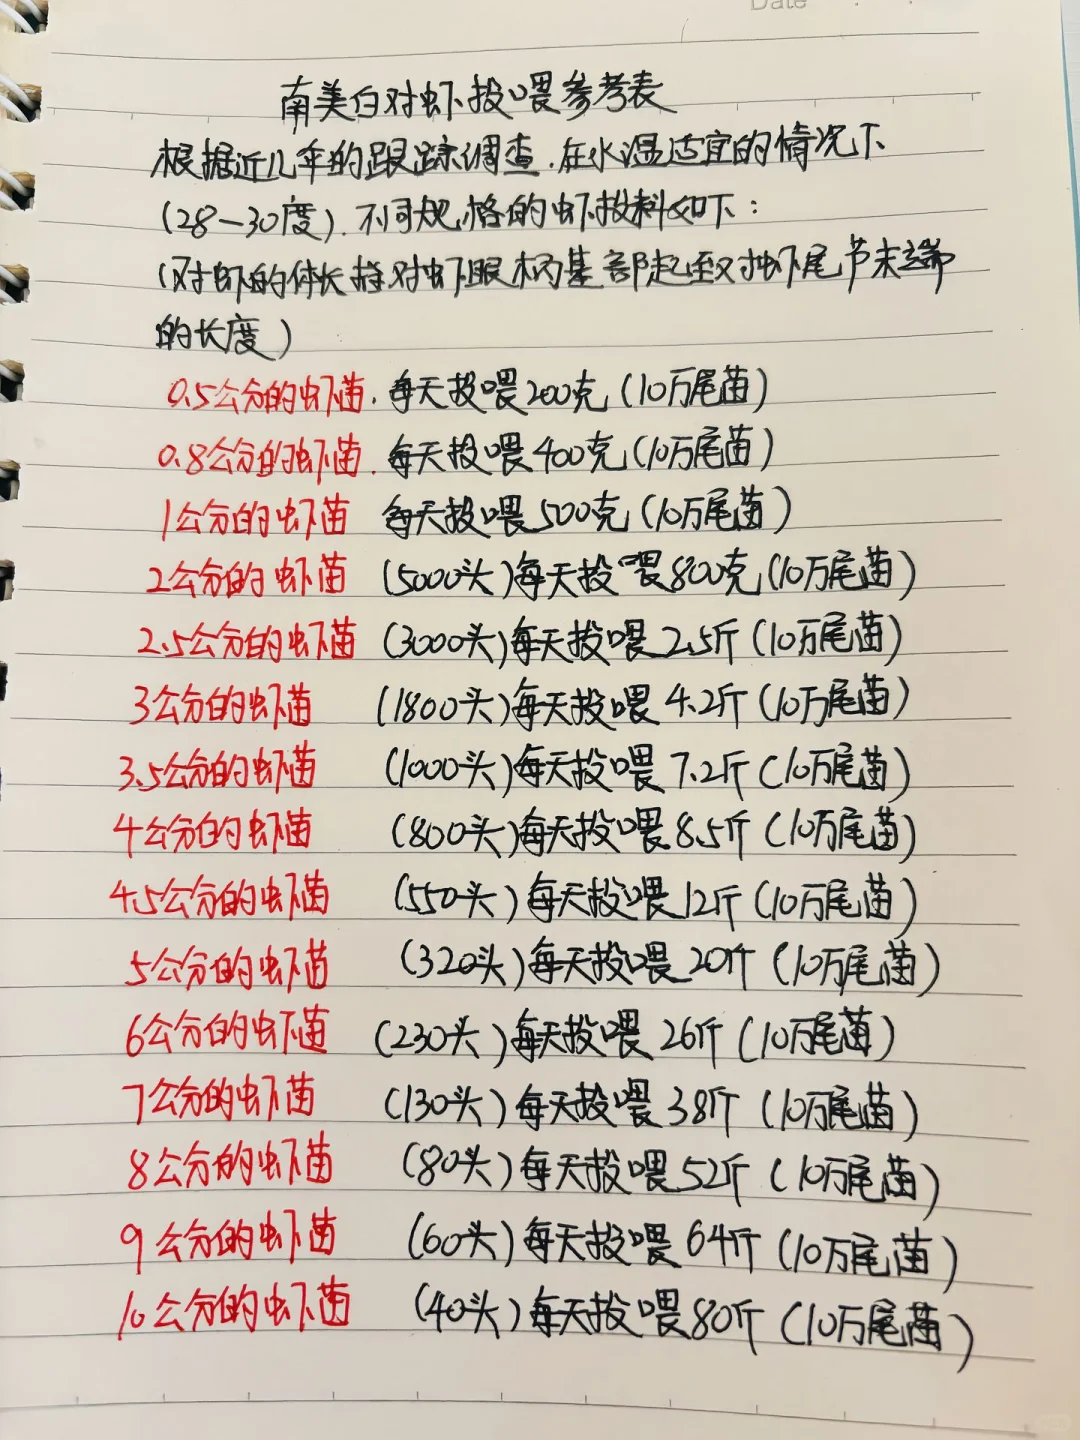 Date : .
南美白对虾投喂参考表
根据近几年的跟踪调查.在水温适宜的情况下
(28—30度).不同规格的虾投料如下:
(对虾的体长指对虾眼柄基部起至对虾尾节末端
的长度)
0.5公分的虾苗.每天投喂200克(10万尾苗)
0.8公分的虾苗.每天投喂400克(10万尾苗)
1公分的虾苗 每天投喂500克(10万尾苗)
2公分的虾苗 (5000头)每天投喂800克(10万尾苗)
2.5公分的虾苗 (3000头)每天投喂2.5斤(10万尾苗)
3公分的虾苗 (1800头)每天投喂4.2斤(10万尾苗)
3.5公分的虾苗 (1000头)每天投喂7.2斤(10万尾苗)
4公分的虾苗 (800头)每天投喂8.5斤(10万尾苗)
4.5公分的虾苗 (550头)每天投喂12斤(10万尾苗)
5公分的虾苗 (320头)每天投喂20斤(10万尾苗)
6公分的虾苗 (230头)每天投喂26斤(10万尾苗)
7公分的虾苗 (130头)每天投喂38斤(10万尾苗)
8公分的虾苗 (80头)每天投喂52斤(10万尾苗)
9公分的虾苗 (60头)每天投喂64斤(10万尾苗)
10公分的虾苗 (40头)每天投喂80斤(10万尾苗)